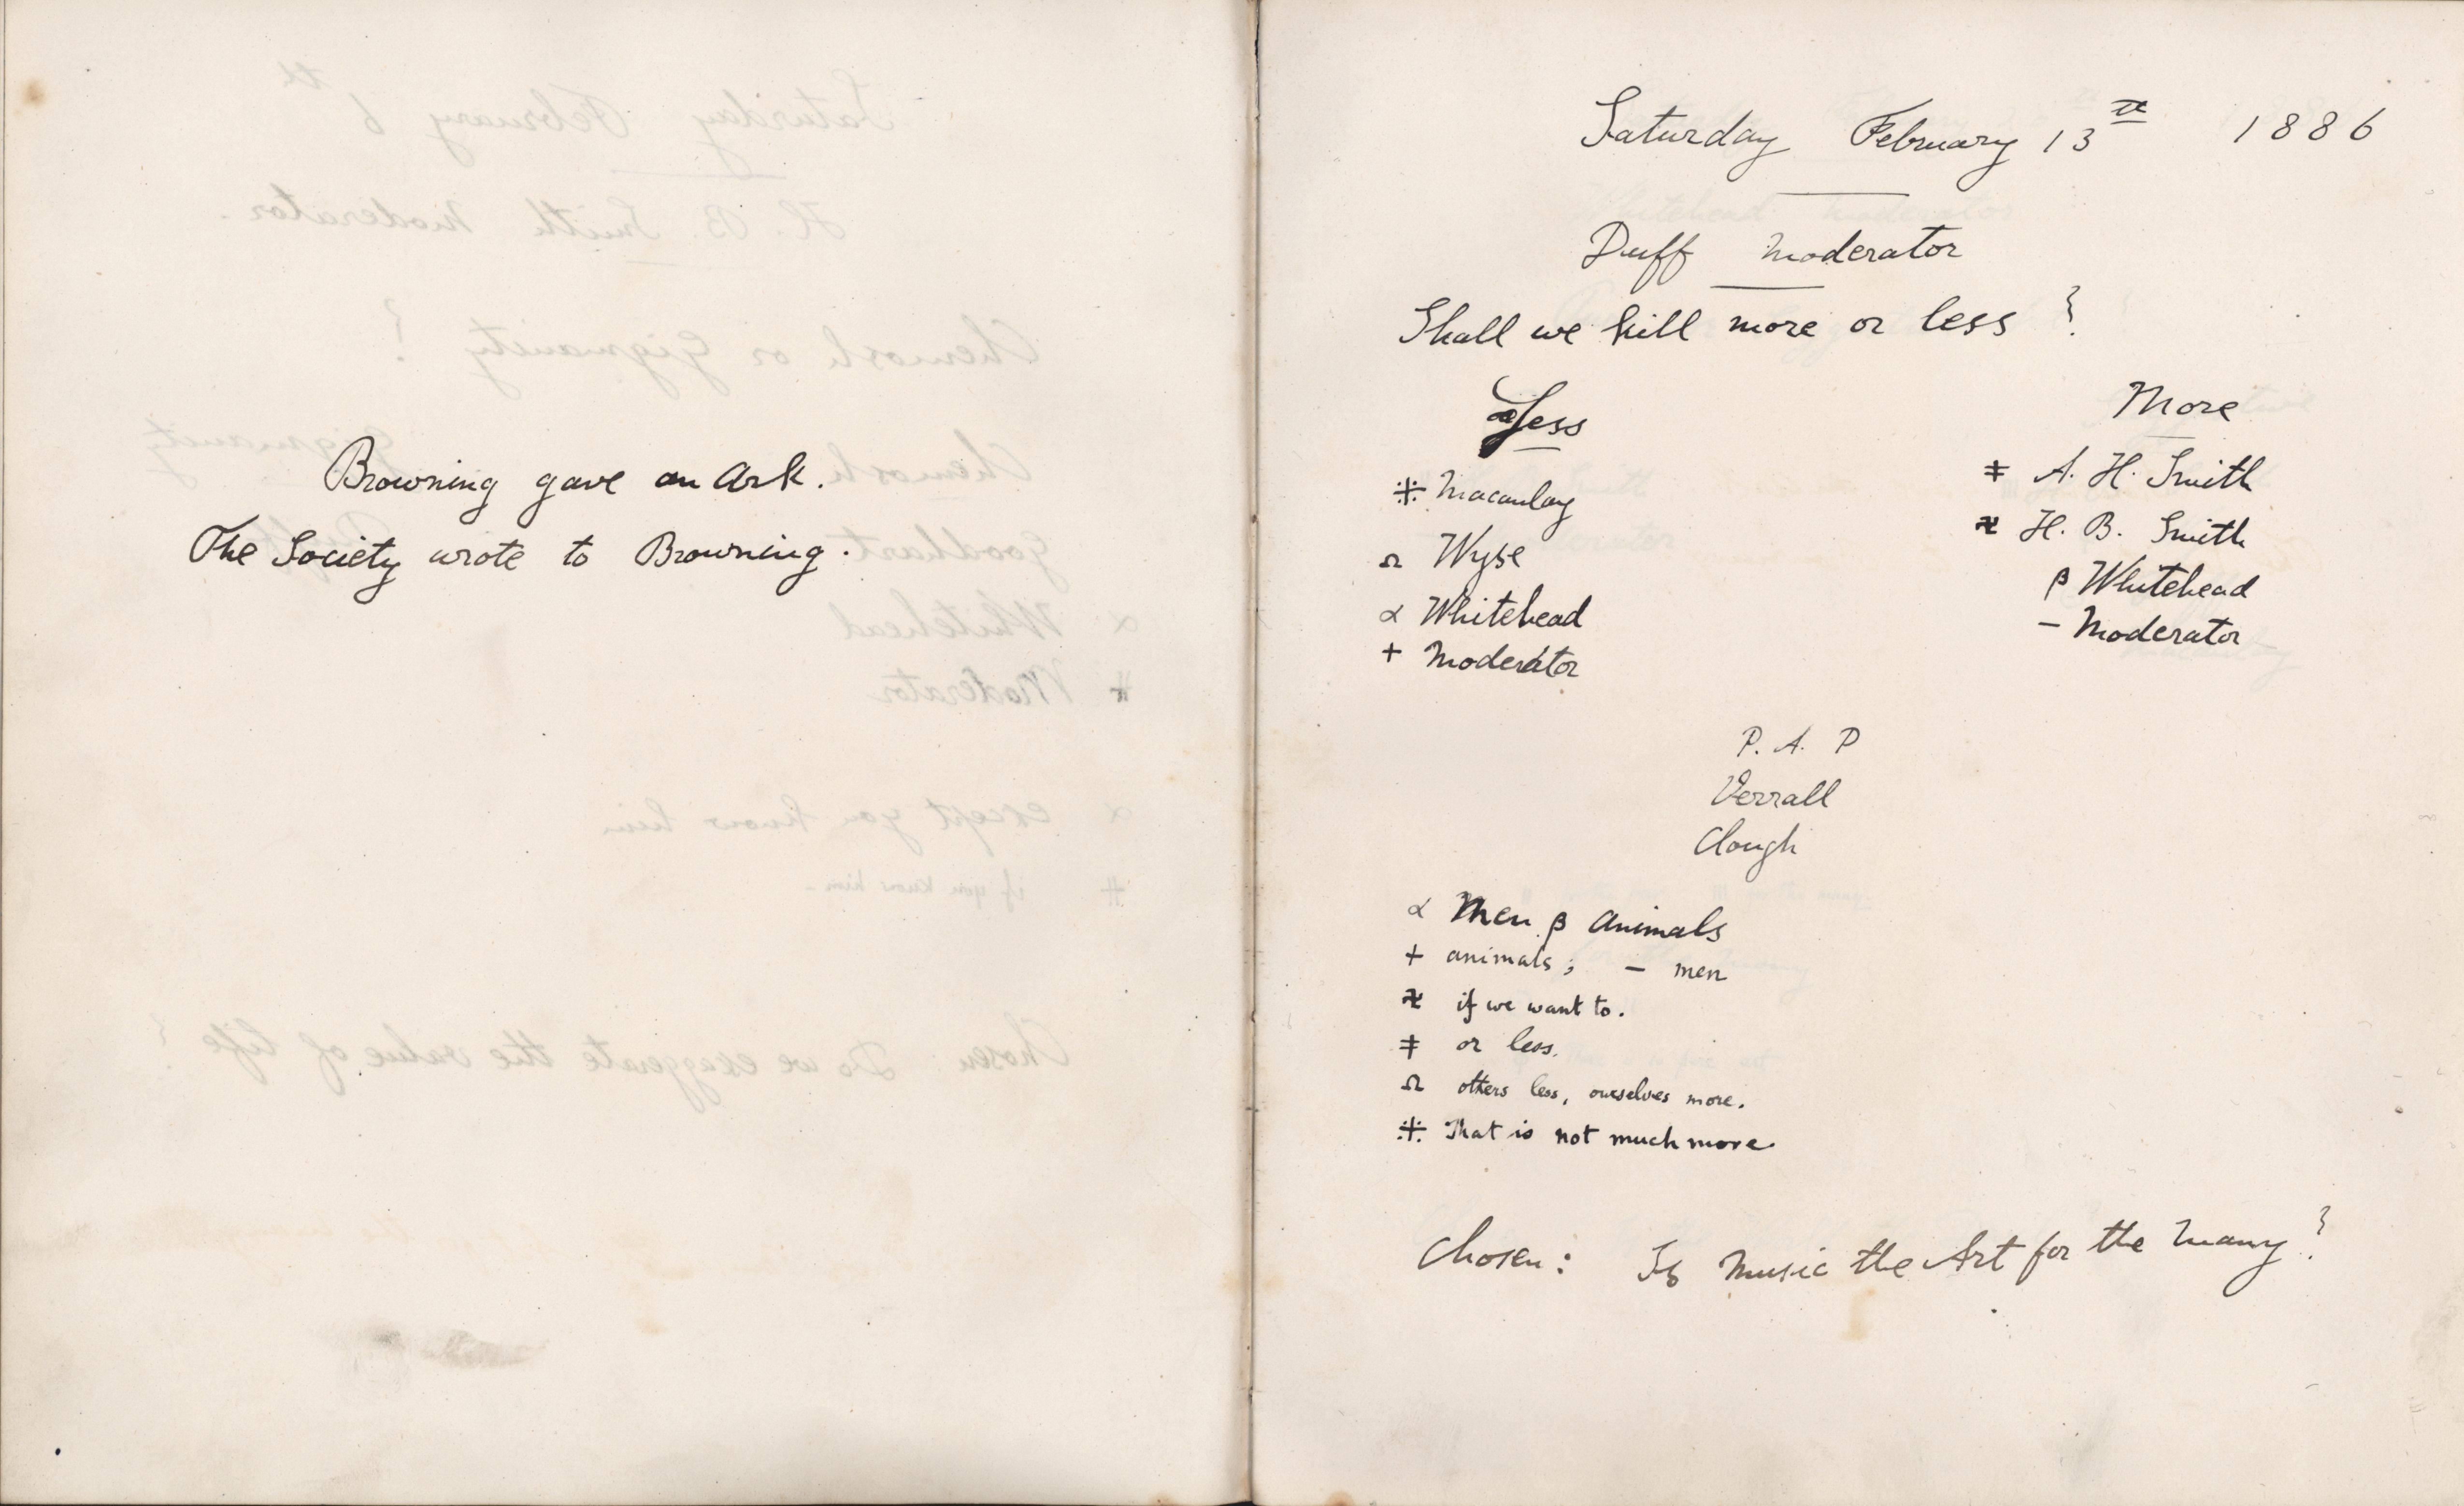 Browning gave an Ark.
The Society wrote to Browning.
Saturday February 13th 1886
Duff Moderator
Shall we kill more or less?
Less
More
⁜ Macaulay
Ω Wyse
α Whitehead
+ Moderator
ǂ A. H. Smith
H. B. Smith
β Whitehead
− Moderator
P. A. P
Verrall
Clough
α Men β animals
+ animals; − men
if we want to.
ǂ or less.
Ω others less, ourselves more.
⁜ That is not much more
Chosen: Is Music the Art for the Many?